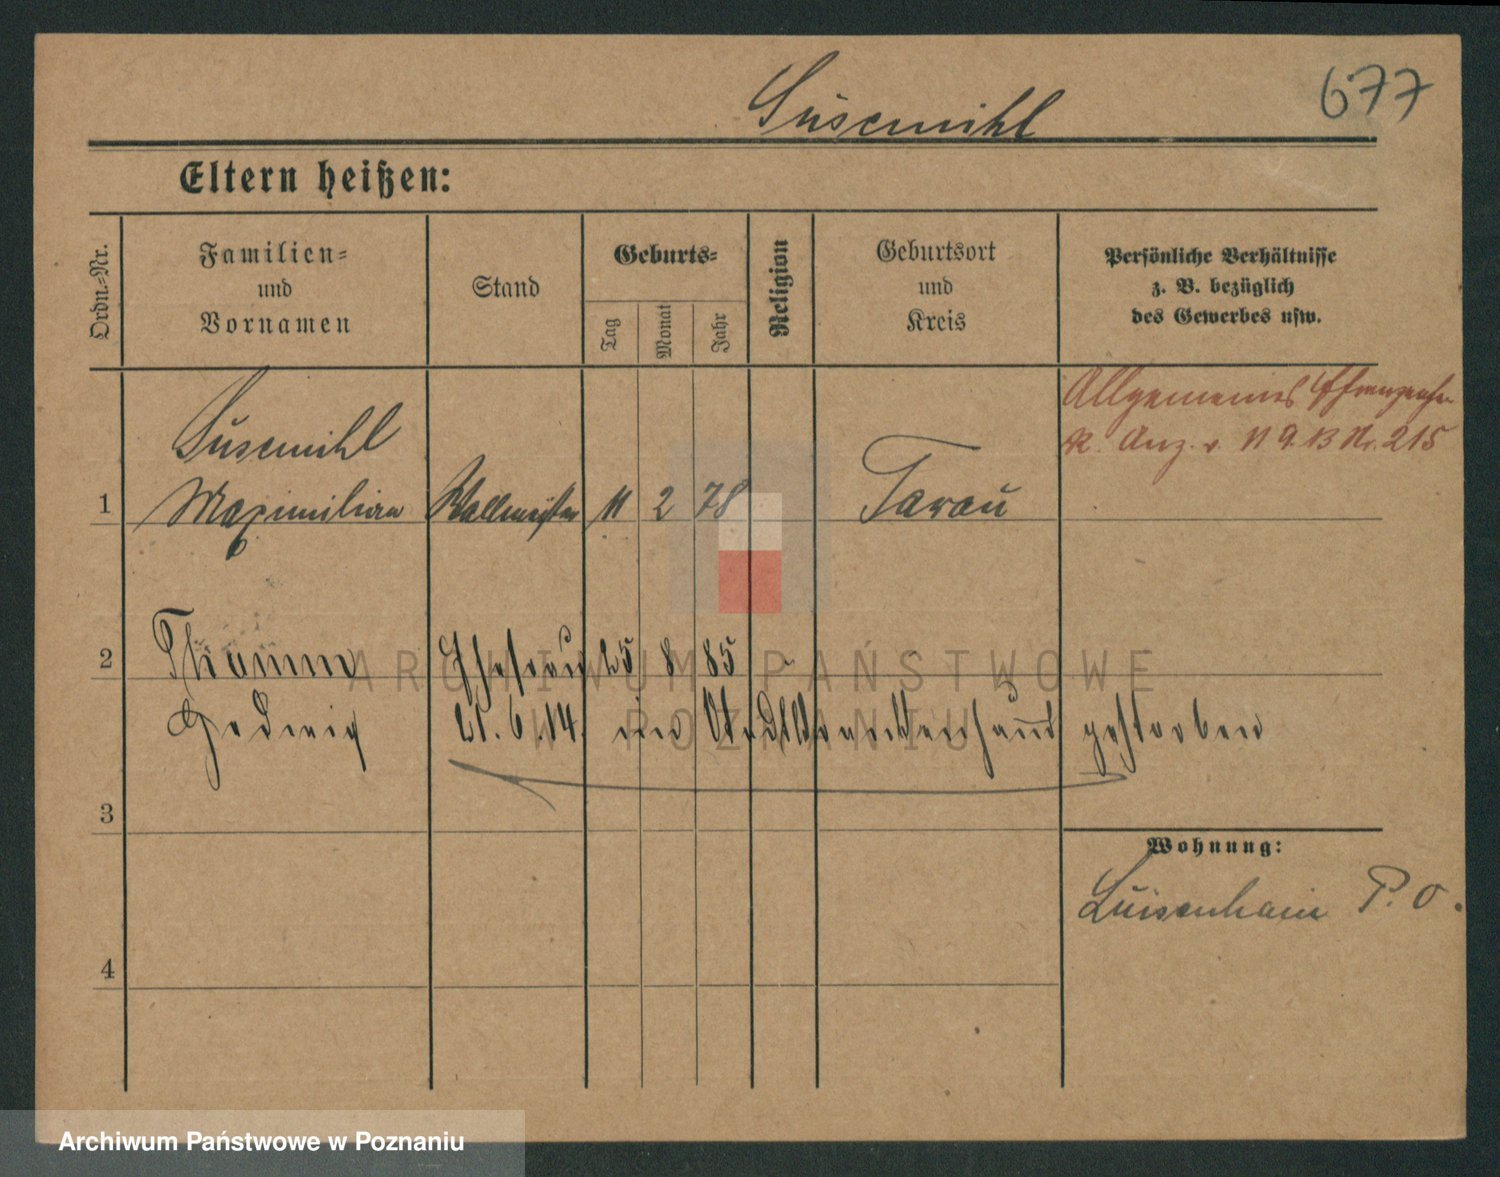 Susemihl
677
Eltern heißen:
Ordn.-Nr.
Familien-
und
Vornamen
Stand
Geburts-
Tag
Monat
Jahr
Religion
Geburtsort
und
Kreis
Persönliche Verhältnisse
z. B. bezüglich
des Gewerbes usw.
Allgemeines
R. Anz. v. 11 9. 13 Nr. 215
Susemihl
1 Maximilian Wallmeister 11 2 78 Tarau
2 Thamm Ehefrau 25 8 85
Hedwig 21. 6. 14. im gestorben
3
Wohnung:
Luisenhain P. O.
4
ARCHIWUM PAŃSTWOWE
W POZNANIU
Archiwum Państwowe w Poznaniu